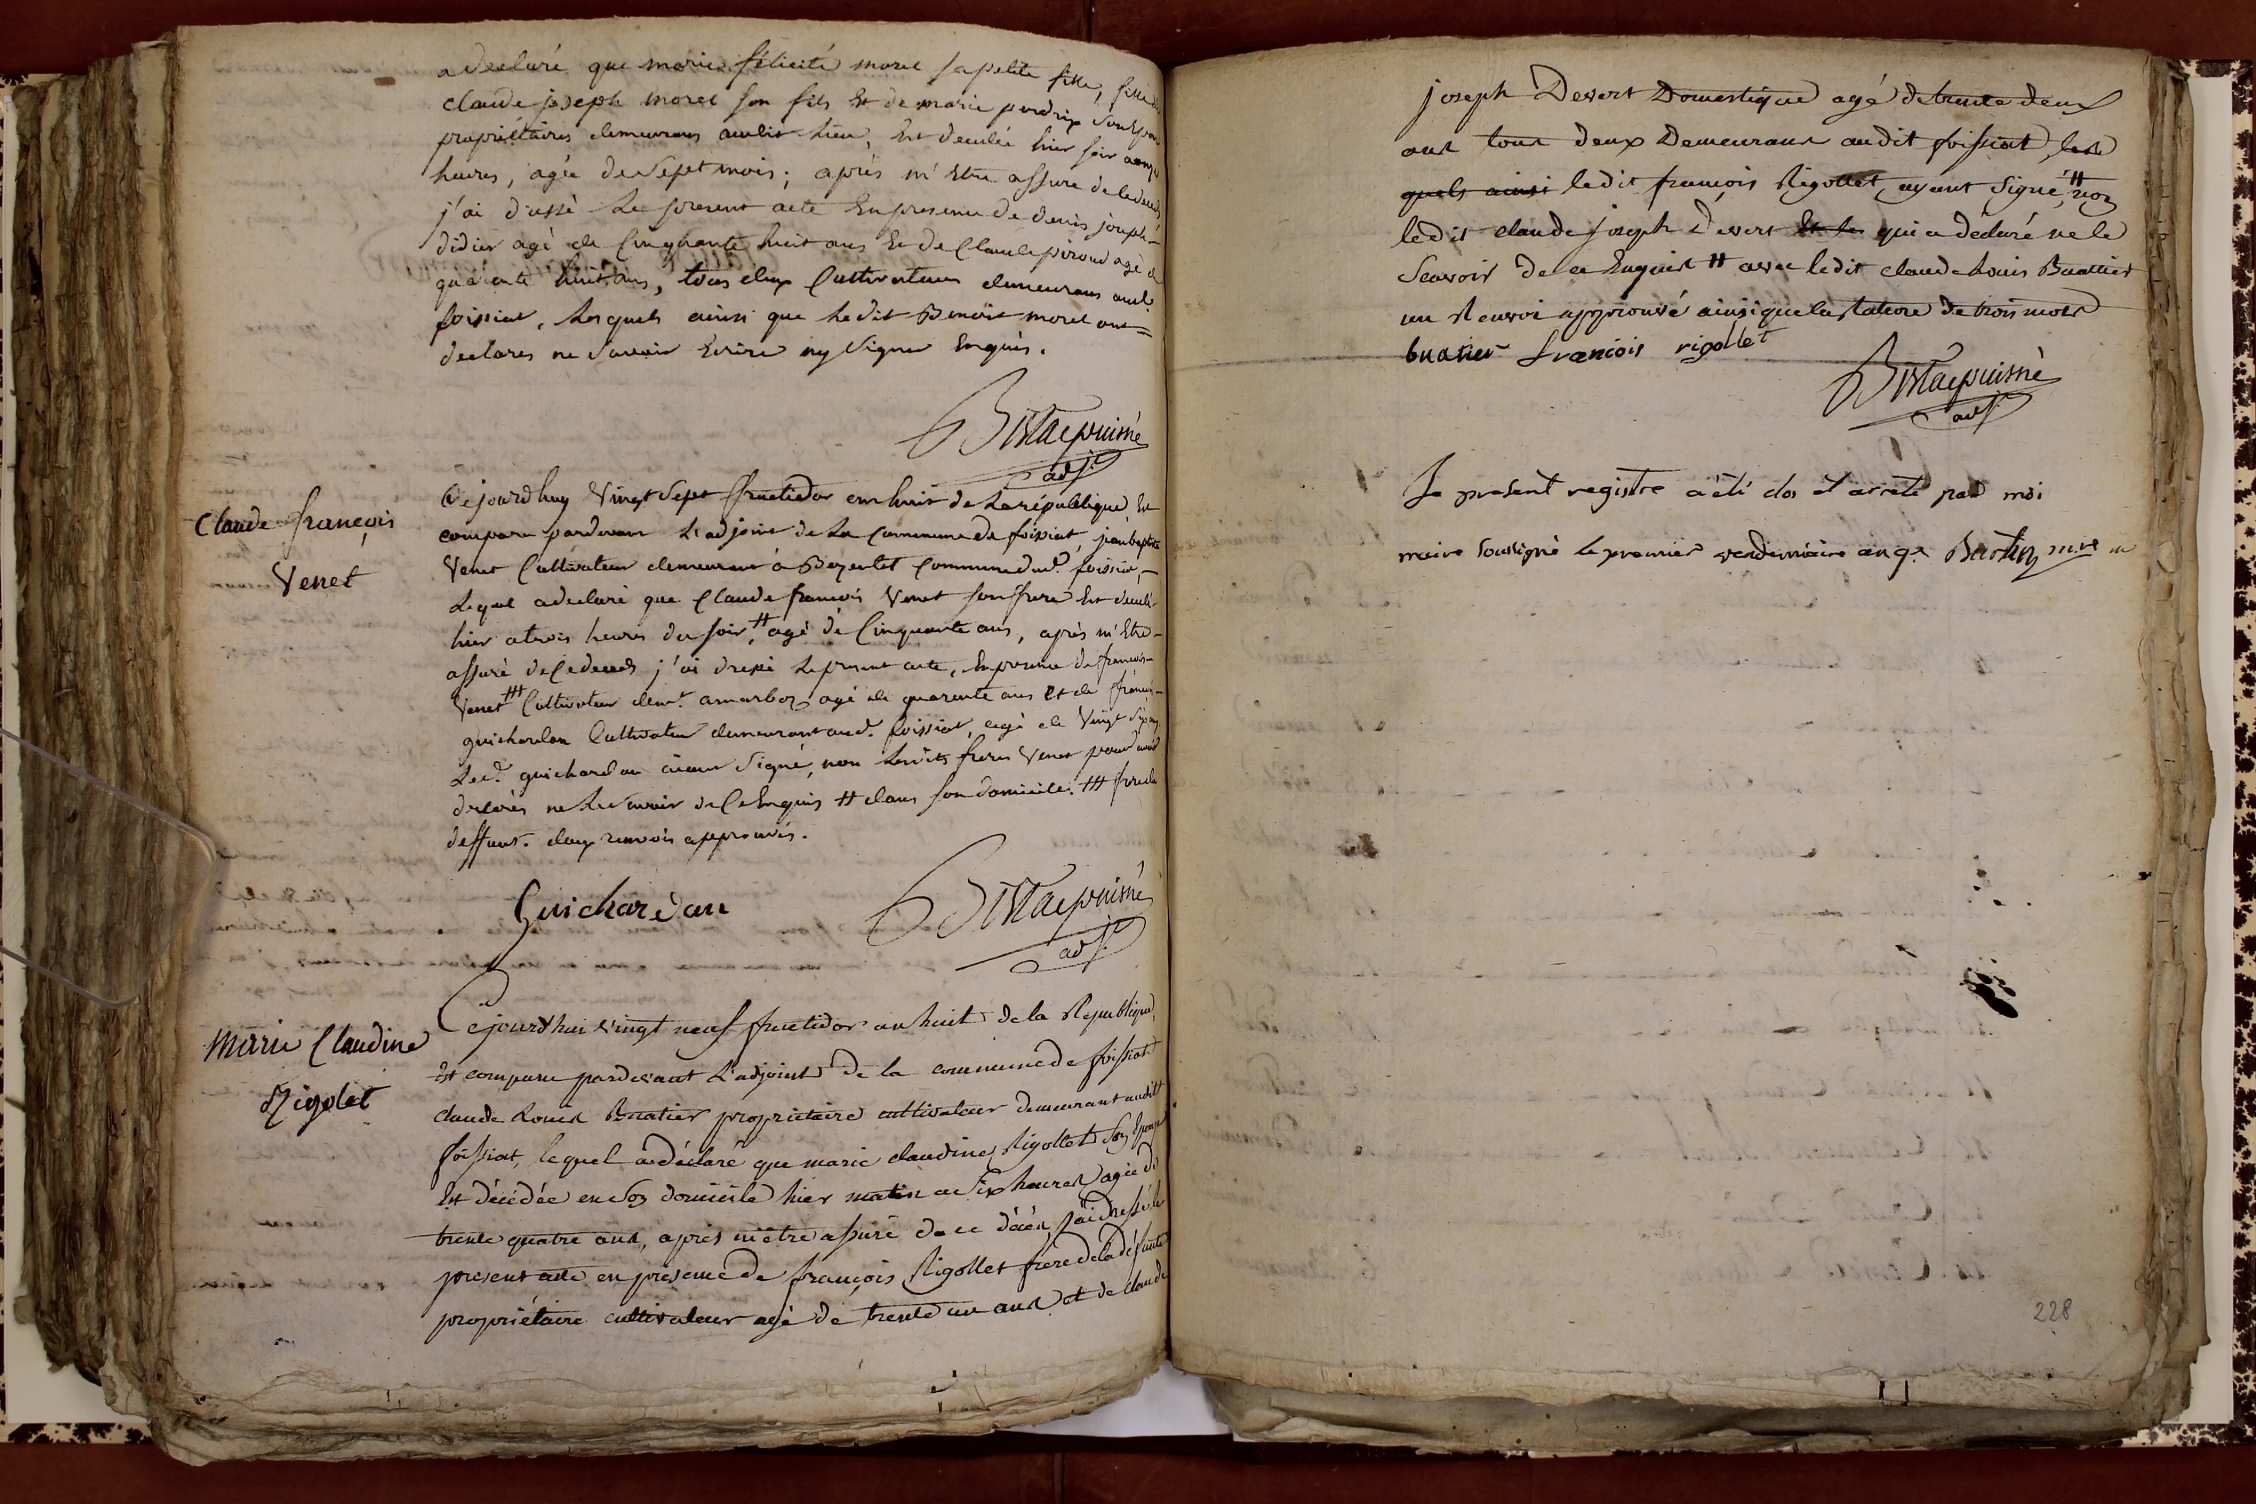 a declaré que marie félicité morel sa petite fille, fille de
claude joseph morel son fils Et de marie perdrix son Epouse
propriétaires demeurans audit lieu, Est decedée hier soir a onze
heures, agée de Sept mois; après m'Etre assuré de ledeceds
j'ai dressé Le present acte En presence de denis joseph
didier agé de Cinquante huit ans Et de Claude piroud agé de
quarante huit ans, tous deux Cultivateurs demeurans aud.
foissiat, Lesquels ainsi que Le dit Benoit morel ont
declarés ne Savoir Ecrire ny Signer Enquis.
Bistac puisné
adj.
Claude françois
Venet
Cejourdhuy Vingt Sept fructidor an huit de La république Est
comparu pardevant L'adjoint de La Commune de foissiat jean baptiste
Venet Cultivateur demeurant à Bezentet Commune dud. foissiat,
Lequel a declaré que Claude francois Venet son frere Est decedé
hier a trois heures du soir, # agé de Cinquante ans, après m'Etre
assuré de Ce deceds j'ai dressé Le present acte, En presence de francois
Venet ### Cultivateur dem.t a marboz agé de quarente ans et de françois
guichardon Cultivateur demeurant aud. foissiat, agé de Vingt Six ans
Led. guichardon aiant Signé, non Lesdits freres Venet pour avoir
declarés ne Le Savoir de Ce Enquis # dans son domicile. ### frere du
deffunt. deux renvois approuvés.
Guichardan
Bistac puisné
adj.
Marie Claudine
Rigolet
Cejourd'hui vingt neuf fructidor an huit de la République,
Est comparu pardevant L'adjoint de la commune de foissiat
claude Louis Buatier propriétaire cultivateur demeurant audit
foissiat, lequel a déclaré que marie claudine Rigollet Son Epouse
Est décédée en Son domicile hier matin a Six heures agée de
trente quatre ans, après m'être assuré de ce décès, j'ai dressé le
present acte en présence de françois Rigollet frere de la défunte
propriétaire cultivateur agé de trente un ans et de claude
joseph Desert Domestique agé de trente deux
ans tous deux Demeurans audit foissiat, les
quels ainsi ledit françois Rigollet ayant Signé, # non
ledit claude joseph Desert Et les qui a déclaré ne le
Scavoir de ce Enquis # avec ledit claude Louis Buattier
un Renvoi approuvé ainsi que la rature de trois mots
buatier francois rigollet
Bistac puisné
adj.
Le present registre a été clos et arrêté par moi
maire soussigné le premier vendemiaire an 9.e Burtin m.re
228